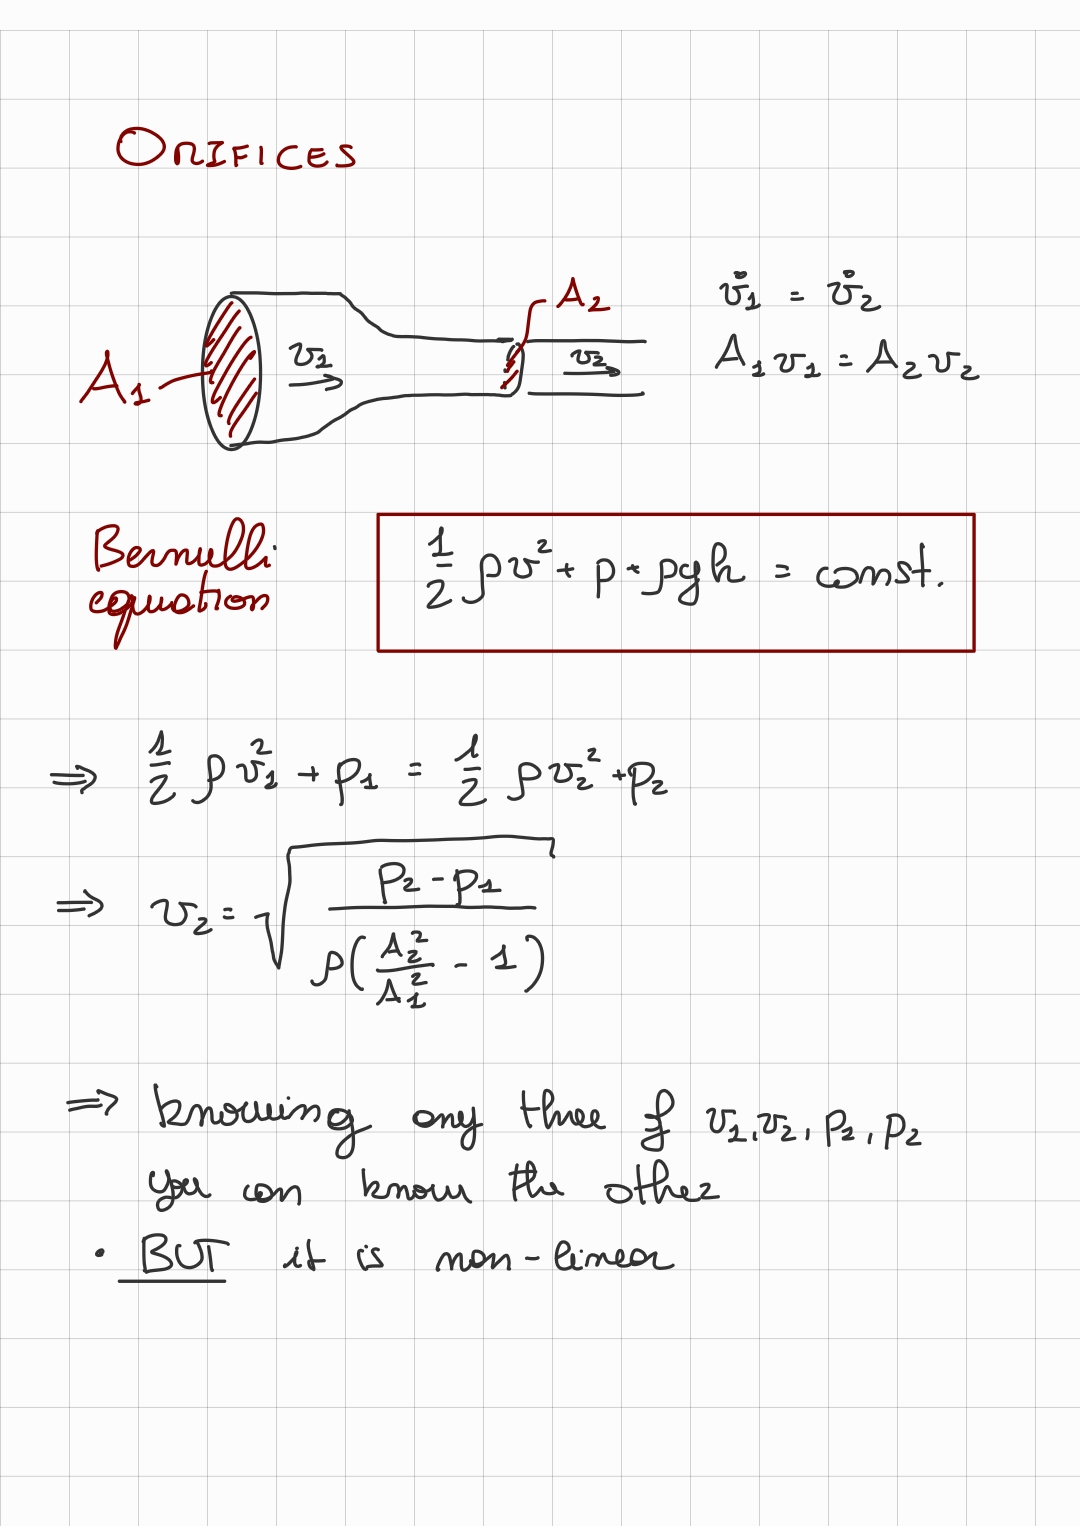 ORIFICES
A₁ v₁ → A₂ v₂ →
v̇₁ = v̇₂
A₁v₁ = A₂v₂
Bernulli
equation
1/2 ρv² + p + ρgh = const.
⇒ 1/2 ρv₁² + p₁ = 1/2 ρv₂² + p₂
⇒ v₂ = √((p₂ - p₁)/(ρ(A₂²/A₁² - 1)))
⇒ knowing any three of v₁, v₂, p₁, p₂
you can know the other
• BUT it is non-linear